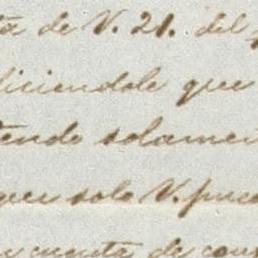 ta de V. 21. del
diciendole que
endo solamen
quer solo V. pue
n cuenta de con